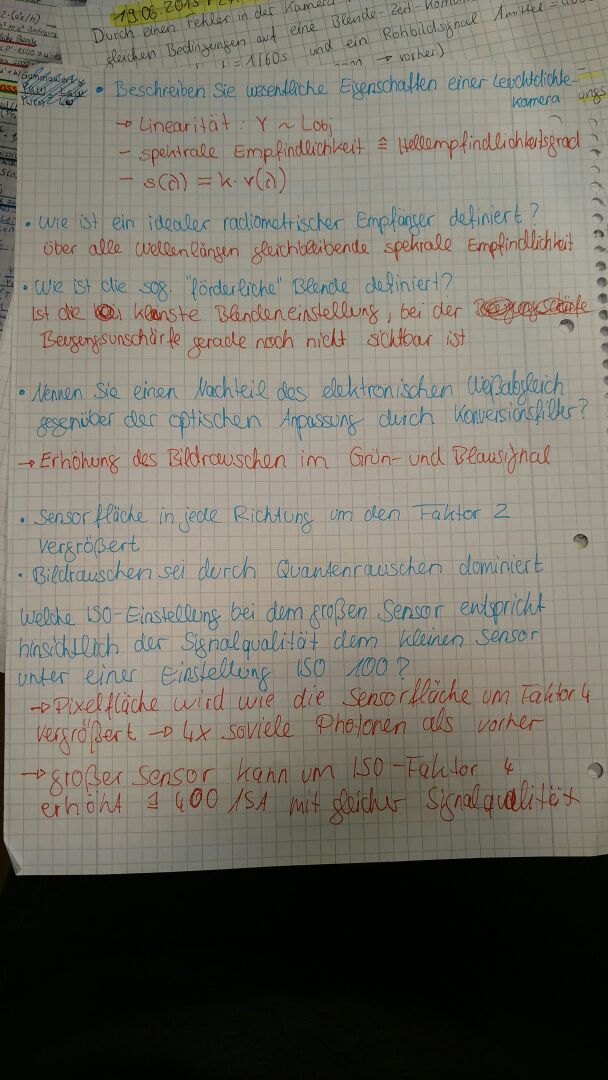 19.06.2015
Durch einen Fehler in der Kamera
gleichen Bedingungen auf eine Blende-Zeit-
t=1/60s und ein Rohbildsignal
→ vorher)
• Beschreiben Sie wesentliche Eigenschaften einer Leuchtdichte-
kamera
→ Linearität: Y ~ Lobj
- spektrale Empfindlichkeit ≙ Hellempfindlichkeitsgrad
- s(λ) = k · v(λ)
• Wie ist ein idealer radiometrischer Empfänger definiert?
über alle Wellenlängen gleichbleibende spekrale Empfindlichkeit
• Wie ist die sog. "förderliche" Blende definiert?
Ist die kleinste Blendeneinstellung, bei der
Beugungsunschärfe gerade noch nicht sichtbar ist
• Nennen Sie einen Nachteil des elektronischen Weißabgleich
gegenüber der optischen Anpassung durch Konversionsfilter?
→ Erhöhung des Bildrauschen im Grün- und Blausignal
• Sensorfläche in jede Richtung um den Faktor 2
vergrößert
• Bildrauschen sei durch Quantenrauschen dominiert
Welche ISO-Einstellung bei dem großen Sensor entspricht
hinsichtlich der Signalqualität dem kleinen Sensor
unter einer Einstellung ISO 100?
→ Pixelfläche wird wie die Sensorfläche um Faktor 4
vergrößert → 4x soviele Photonen als vorher
→ großer Sensor kann um ISO-Faktor 4
erhöht ≙ 400 ISA mit gleicher Signalqualität